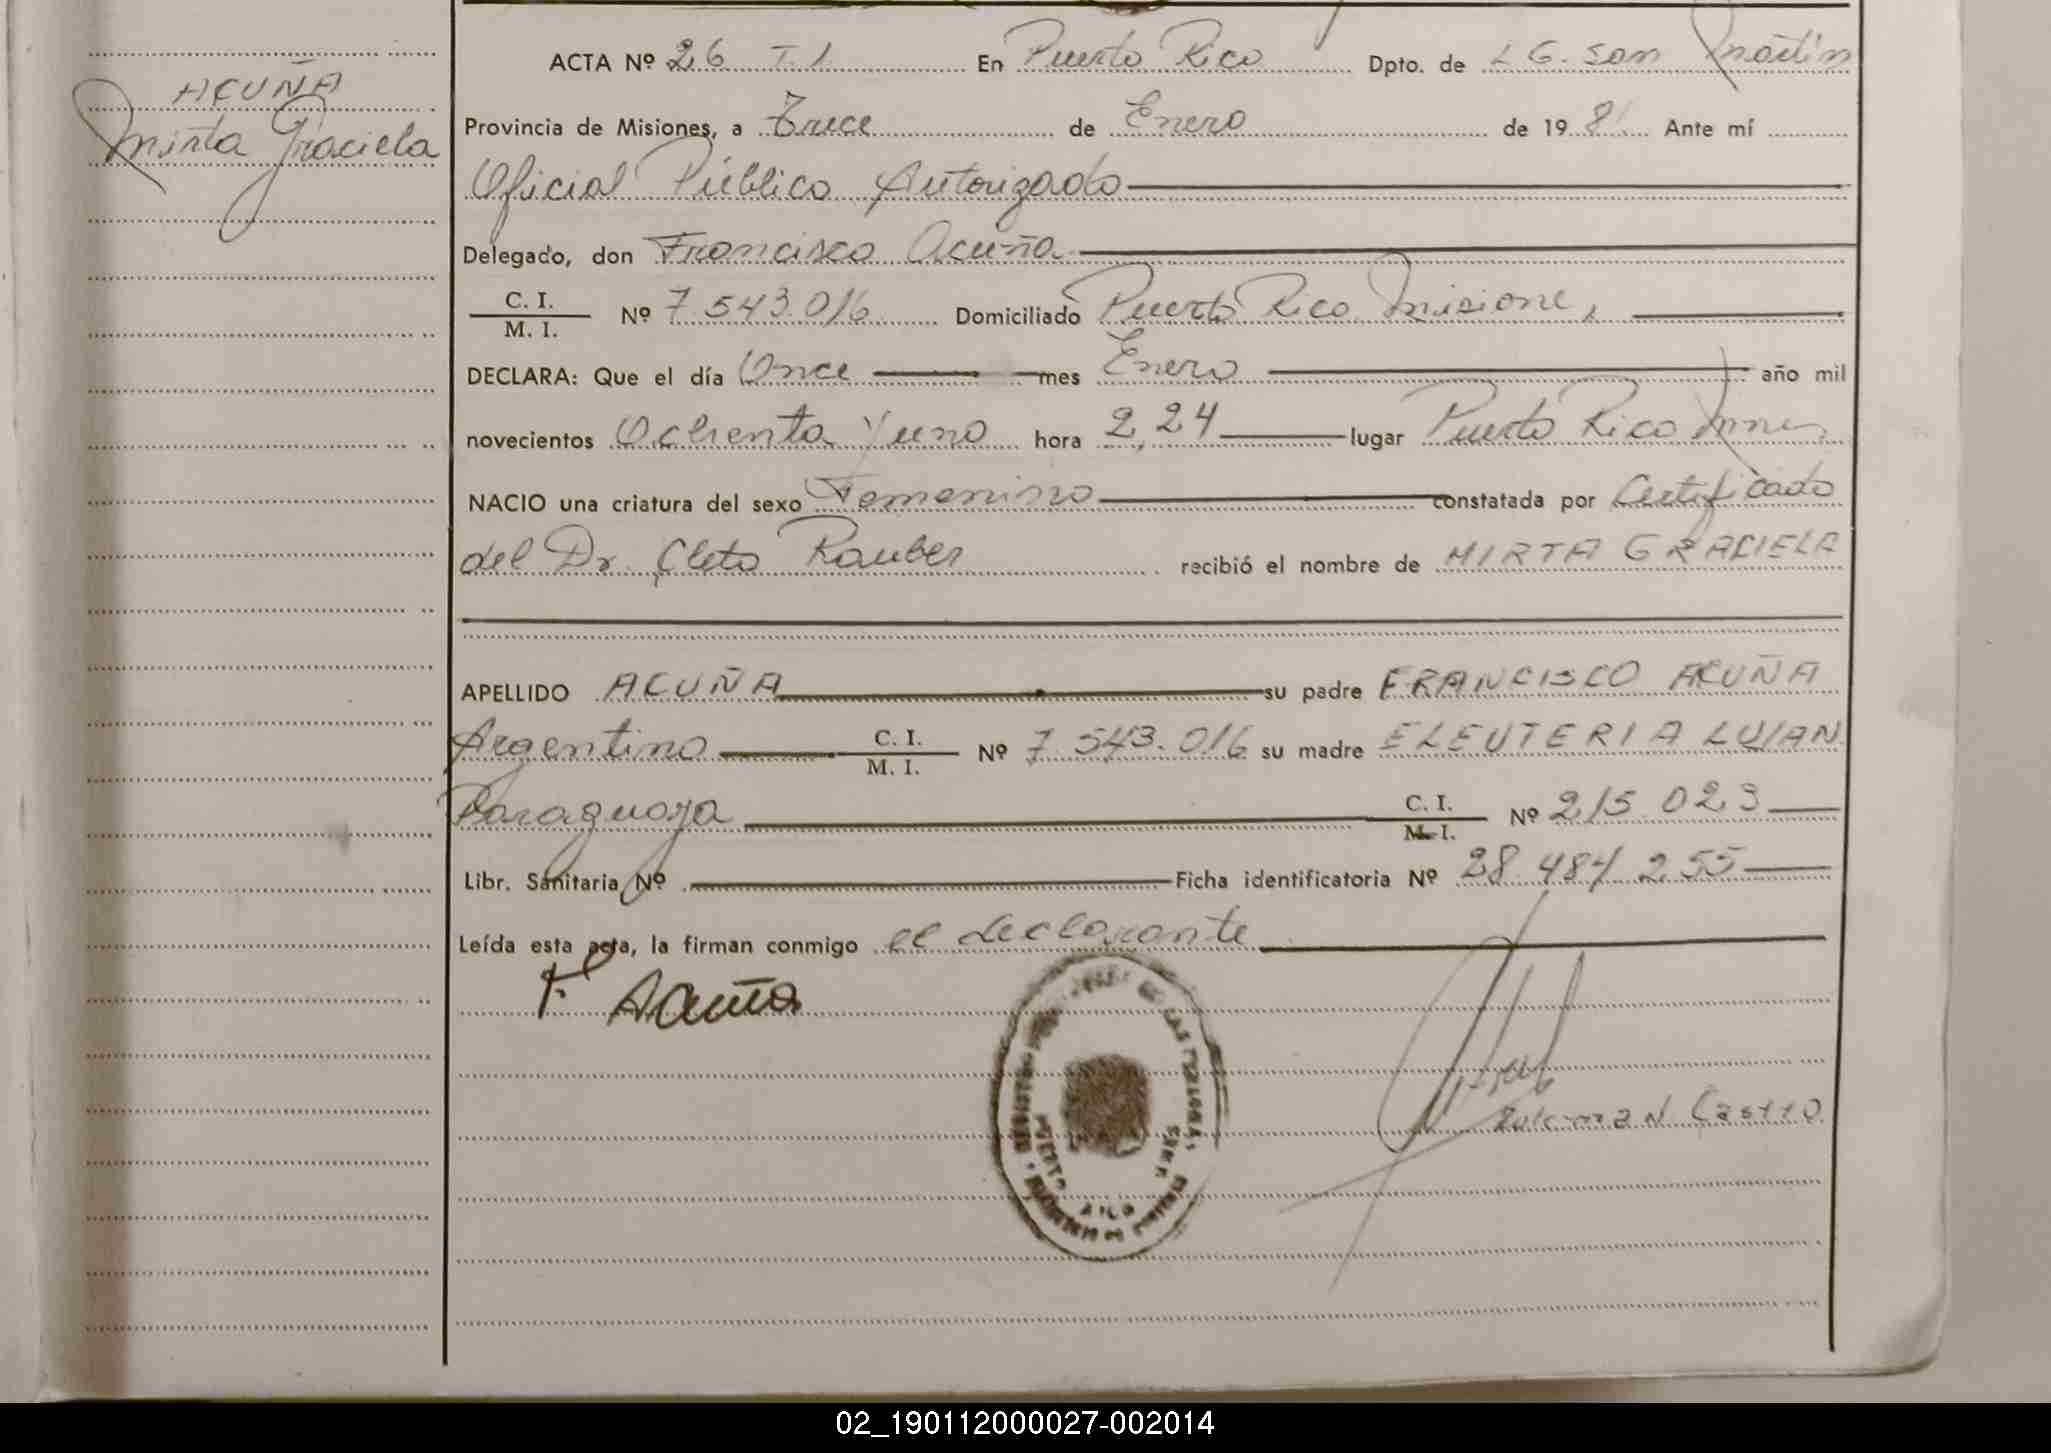 ACUÑA
Mirta Graciela
ACTA Nº 26 T.1 En Puerto Rico Dpto. de L G. San Martín
Provincia de Misiones, a Trece de Enero de 19 81 Ante mí
Oficial Público Autorizado
Delegado, don Francisco Acuña
C. I.
M. I.
Nº 7.543.016 Domiciliado Puerto Rico Misiones
DECLARA: Que el día Once mes Enero año mil
novecientos Ochenta y uno hora 2,24 lugar Puerto Rico Mnes
NACIO una criatura del sexo Femenino constatada por Certificado
del Dr. Cleto Rauber recibió el nombre de MIRTA GRACIELA
APELLIDO ACUÑA su padre FRANCISCO ACUÑA
Argentino C. I. M. I. Nº 7.543.016 su madre ELEUTERIA LUJAN
Paraguaya C. I. M. I. Nº 215.023
Libr. Sanitaria Nº Ficha identificatoria Nº 28.484.255
Leída esta acta, la firman conmigo el declarante
F. Acuña
REGISTRO DE LAS PERSONAS
PUERTO RICO
Castro
02_190112000027-002014